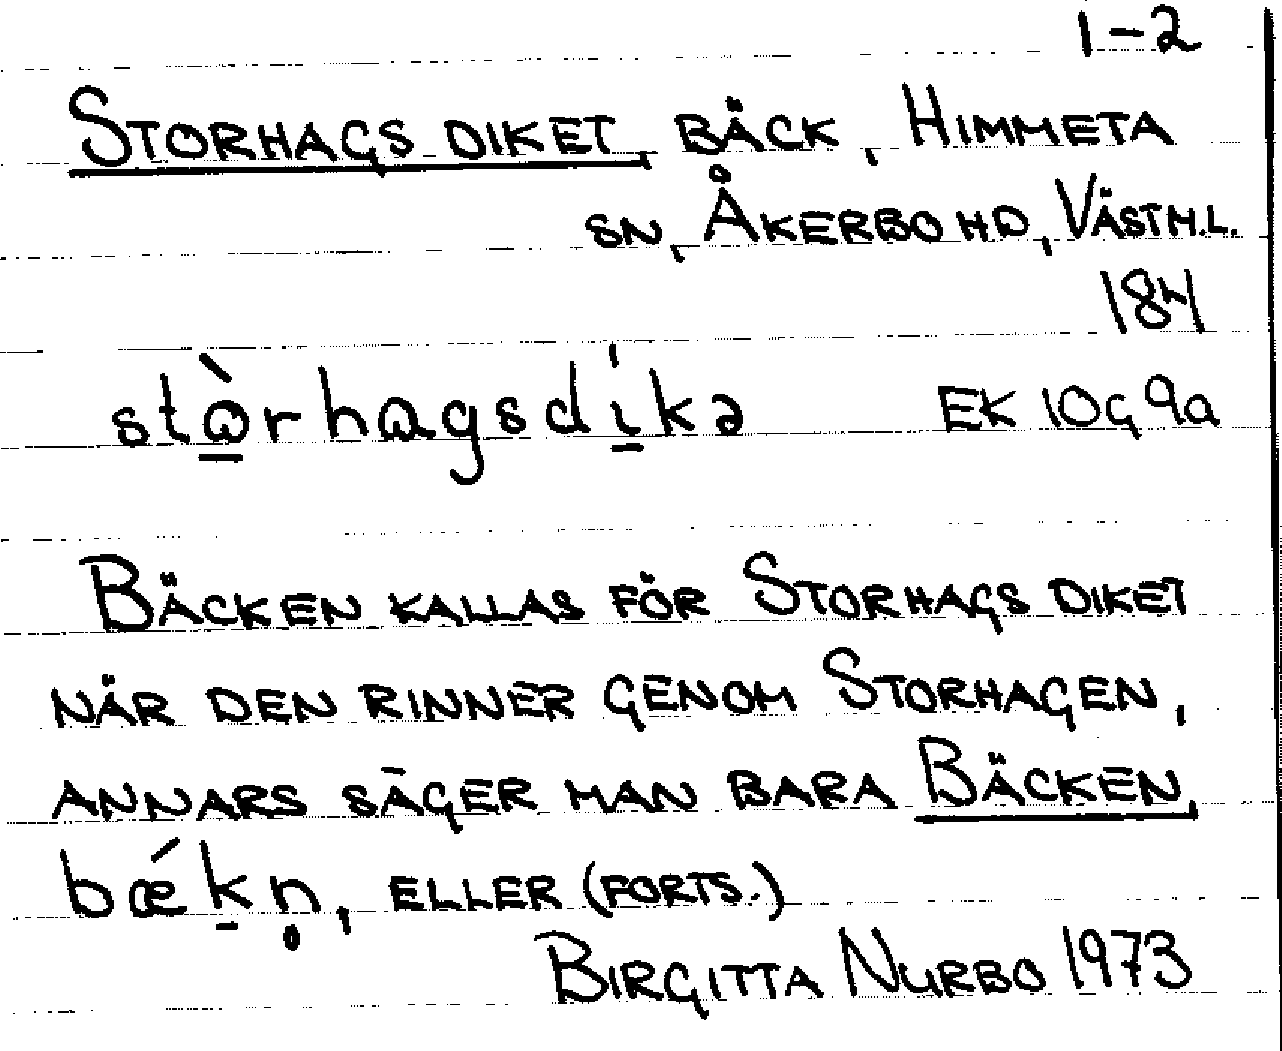 1-2
STORHAGS DIKET, BÄCK, HIMMETA
SN, ÅKERBO HD, VÄSTM.L.
184
stɷ̠̀rhɑgsdí̠kə EK 10G 9a
BÄCKEN KALLAS FÖR STORHAGS DIKET
NÄR DEN RINNER GENOM STORHAGEN,
ANNARS SÄGER MAN BARA BÄCKEN,
bǽk̠n̥, ELLER (FORTS.)
BIRGITTA NURBO 1973